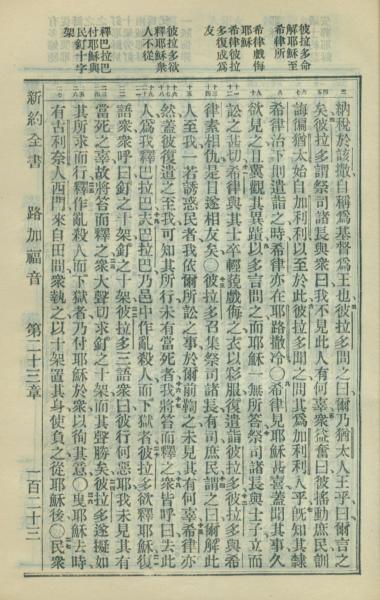 彼拉多命
解耶穌至
希律所
希律戲侮
耶穌
希律彼拉
多復成爲
友
彼拉多欲
釋耶穌衆
人不從
釋巴拉巴
付耶穌與
民釘十字
架
納稅於該撒自稱爲基督爲王也彼拉多問之曰爾乃猶太人王乎曰爾言之
矣彼拉多謂祭司諸長與衆曰我不見此人有何辜衆益奮曰彼搖動庶民訓
誨徧猶太始自加利利以至於此彼拉多聞之問其爲加利利人乎旣知其隸
希律治下則遣詣之時希律亦在耶路撒冷〇希律見耶穌甚喜蓋聞其事久
欲見之且冀觀其異蹟以多言問之而耶穌一無所答祭司諸長與士子立而
訟之甚切希律與其士卒輕藐戲侮之衣以彩服復遣詣彼拉多彼拉多與希
律素相仇是日遂相友矣〇彼拉多召集祭司諸長有司庶民謂之曰爾解此
人至我一若誘惑民者我依爾所訟之事於爾前鞫之未見其有何辜希律亦
然蓋彼復遣之至我可知其所行未有當死者我將笞而釋之衆皆呼曰去此
人爲我釋巴拉巴夫巴拉巴乃邑中作亂殺人而下獄者彼拉多欲釋耶穌復
語衆衆呼曰釘之十架釘之十架彼拉多三語衆曰彼行何惡耶我未見其有
當死之辜故將笞而釋之衆大聲切求釘之十架而其聲勝矣彼拉多遂擬如
其所求而行釋作亂殺人而下獄者乃付耶穌於衆以徇其意〇曳耶穌去時
有古利奈人西門來自田間衆執之以十架置其身使負之從耶穌後〇民衆
新約全書 路加福音 第二十三章 一百二十三